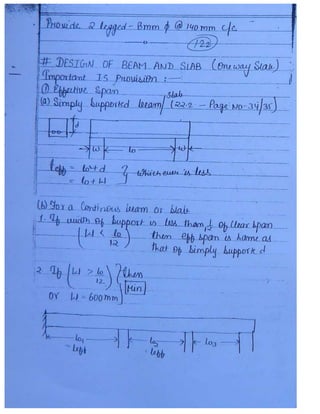 Provide 2 legged - 8mm φ @ 140mm c/c
122
# DESIGN OF BEAM AND SLAB (One way Slab)
Important IS Provision :-
① Effective Span
(a) Simply Supported beam/slab (22.2 - Page No-34/35)
d
W lo W
leff = lo+d
= lo+W } whichever is less
(b) For a Continous beam or slab
1. If width of Support is less than 1/12 of Clear span
(W < lo/12) then eff. span is same as
that of Simply support.
2. If (W > lo/12) then
or W = 600mm [Min]
lo1 lo2 lo3
= leff = leff